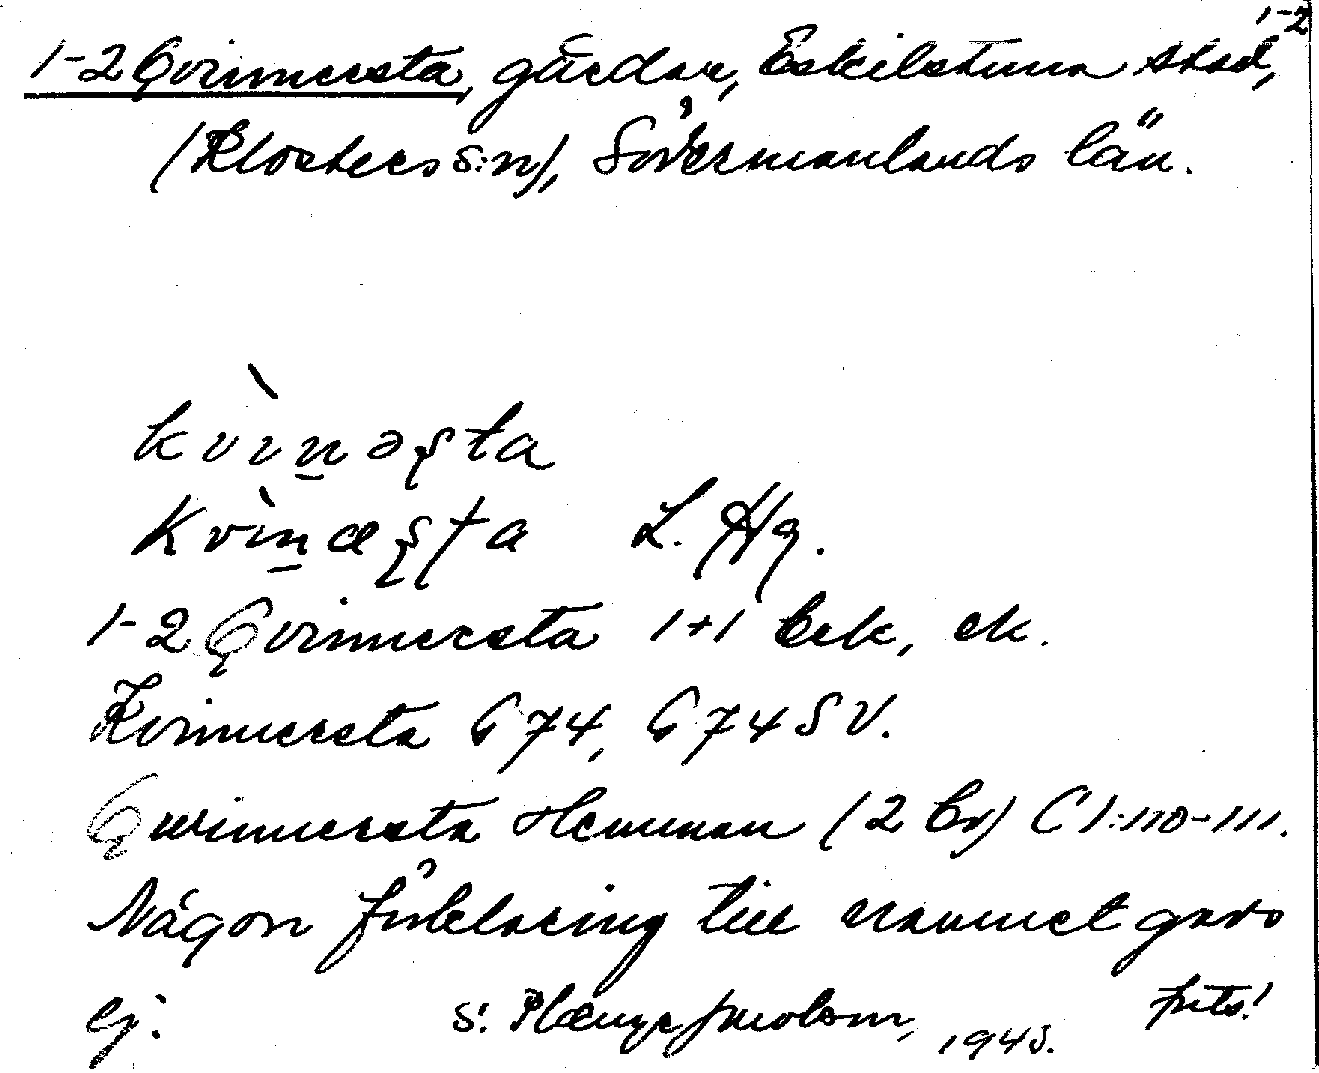 1-2
1-2 Qvinnersta, gårdar, Eskilstuna stad,
(Klosters s:n), Södermanlands län.
kvìn̲əşta
Kvìn̲æşta L. Hg.
1-2 Qvinnersta 1+1 bek, ek.
Kvinnersta G 74, G 74 SV.
Qwinnersta Hemman (2 br) C 1:110-111.
Någon förklaring till namnet gavs
ej. 1945. foto!